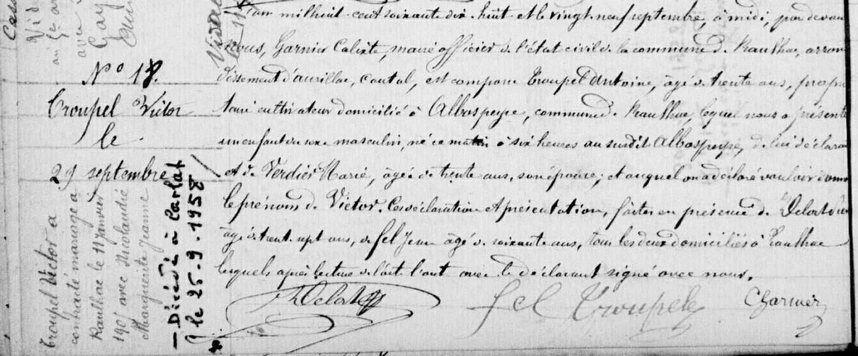 N° 18.
Troupel Victor
le
29 septembre
Troupel Victor a
contracté mariage à
Raulhac le 11 Janvier
1905 avec
Marguerite Jeanne
— Décédé à Carlat
le 25-9-1958
L'an mil huit cent soixante dix huit et le vingt neuf septembre, à midi, par devant
nous, Garnier Calixt, maire officier de l'état civil de la commune de Raulhac, arron
dissement d'aurillac, cantal, est comparu Troupel Antoine, âgé de trente ans, propri
taire cultivateur domicilié à Albospeyre, commune de Raulhac, lequel nous a présenté
un enfant du sexe masculin, né ce matin à six heures au susdit Albospeyre, de lui déclarant
et de Verdier Marie, âgée de trente ans, son épouse; et auquel on a déclaré vouloir donner
le prénom de Victor. Ces déclaration et présentation, faites en présence de
âgé de trent sept ans, de fel Jean âgé de soixante ans, tous les deux domiciliés à Raulhac
lesquels après lecture de l'acte l'ont avec le déclarant signé avec nous.
fel Troupel